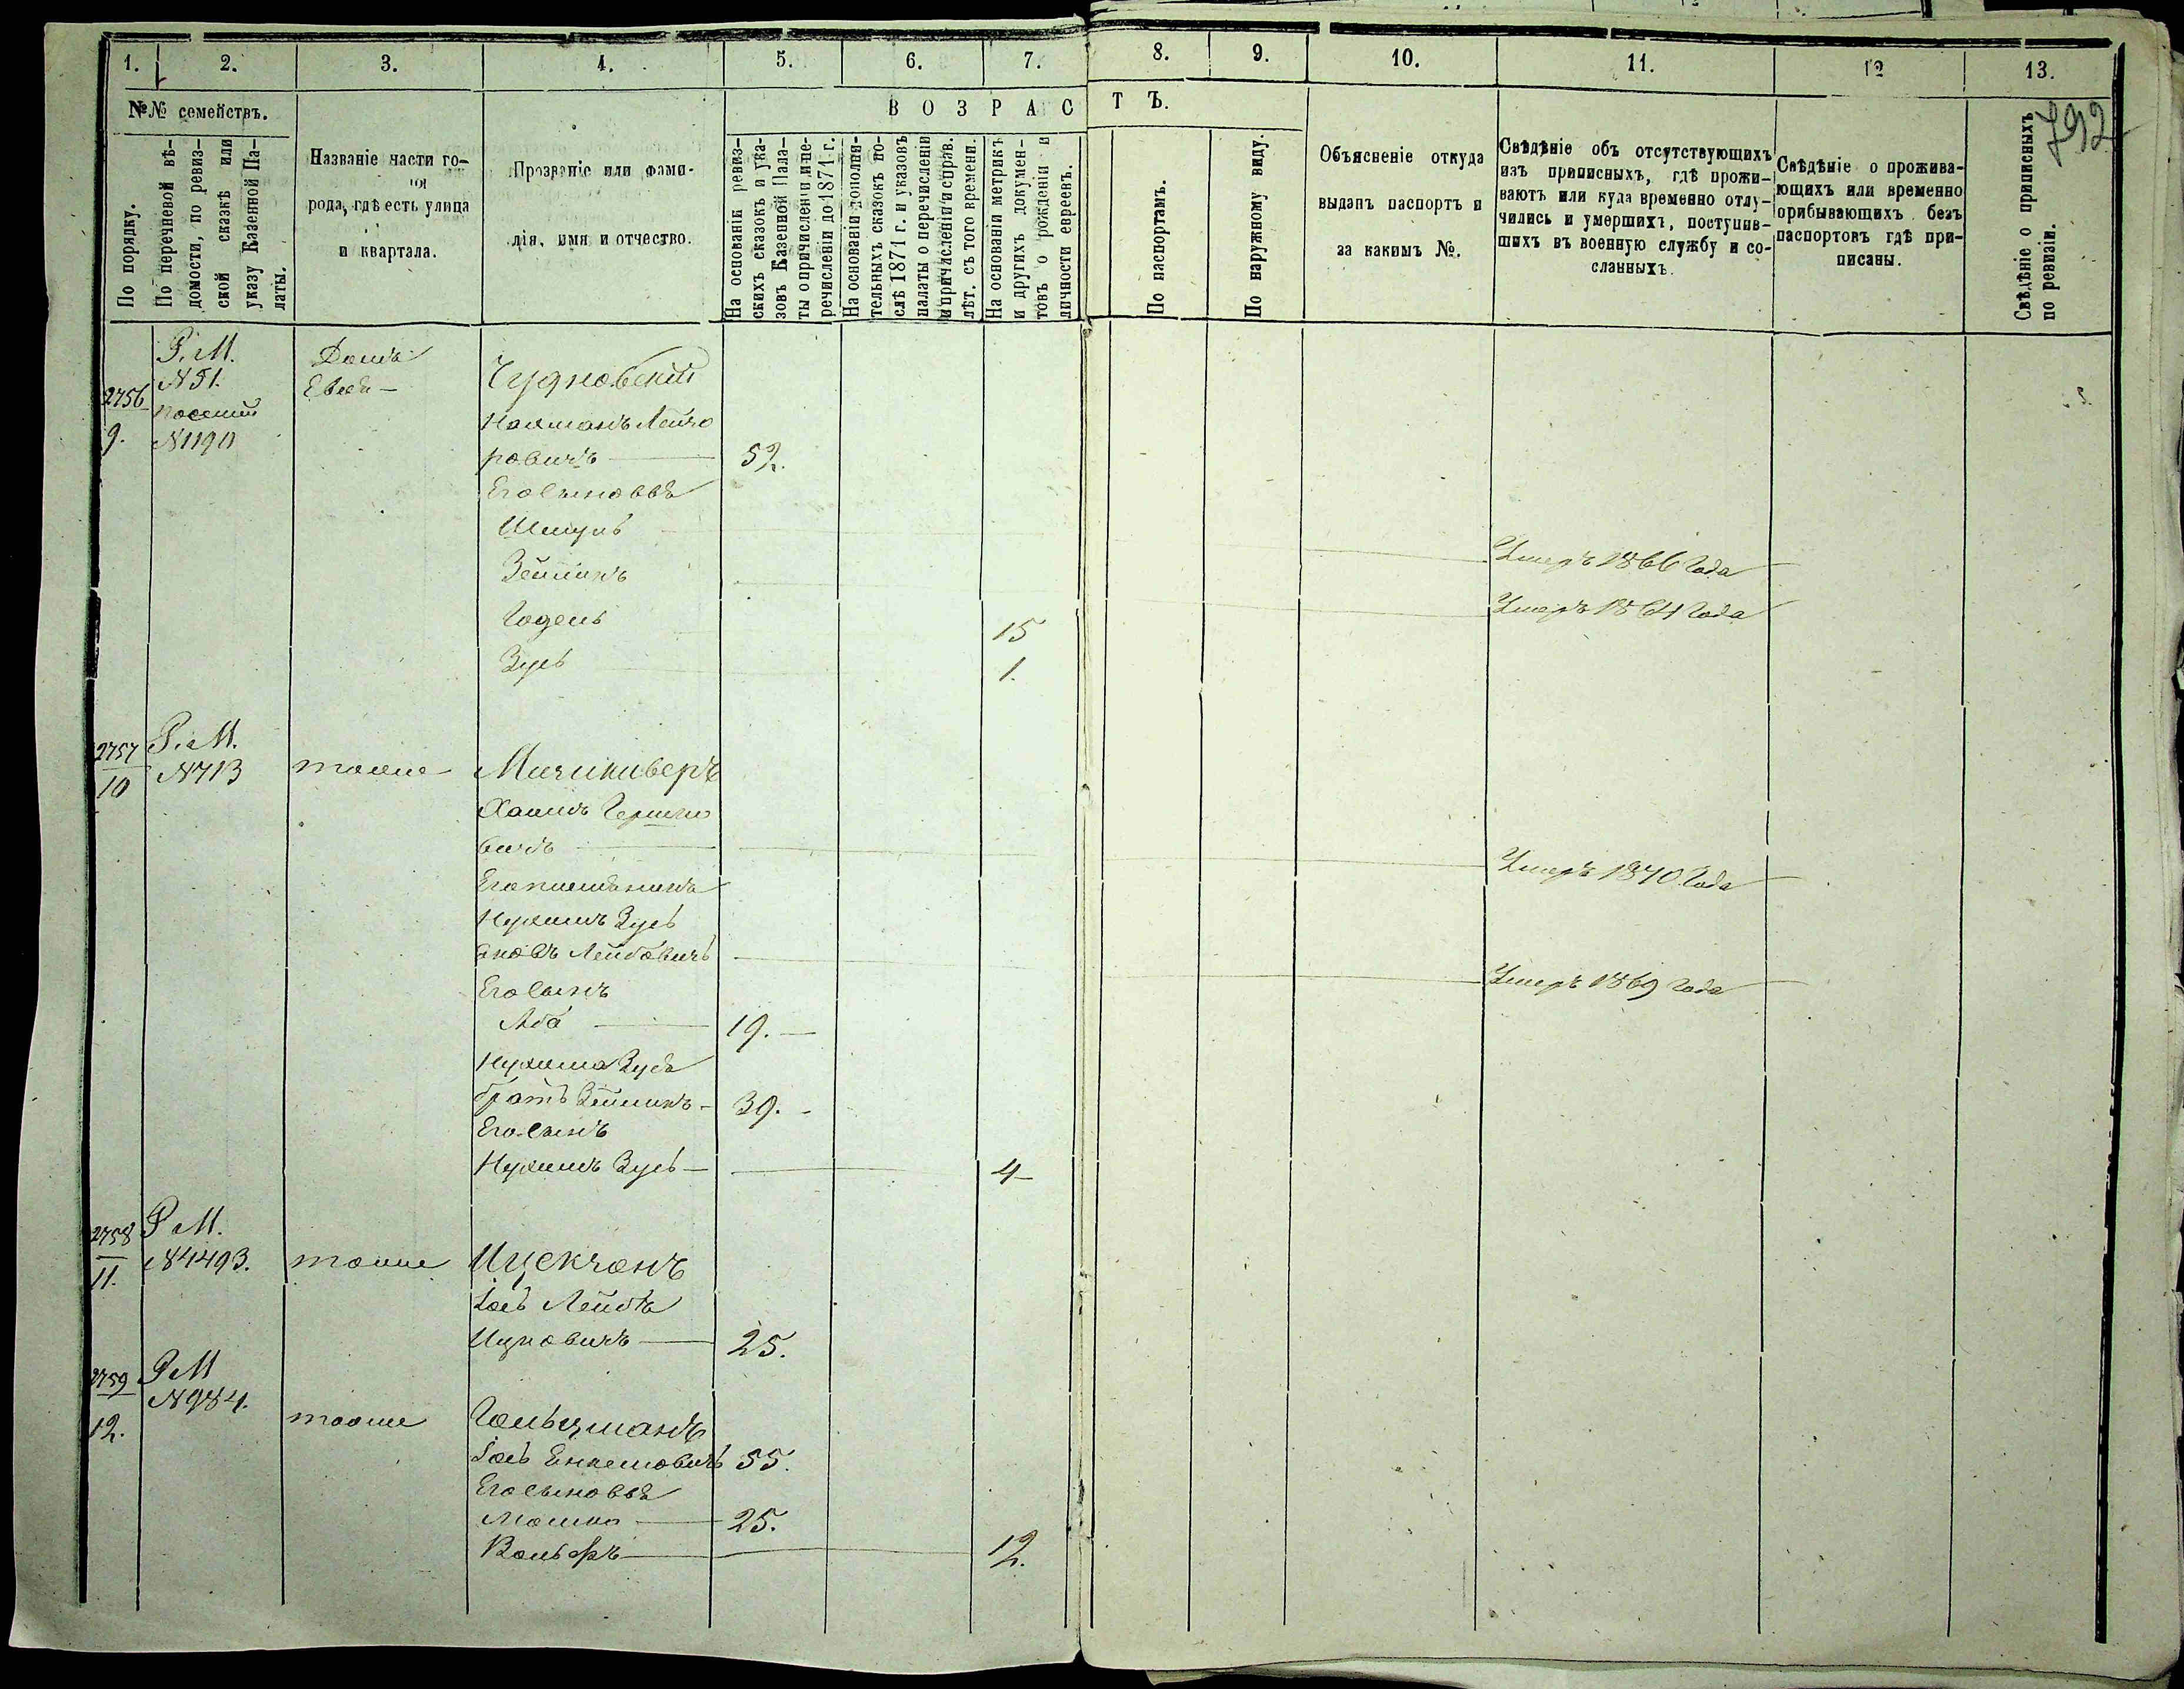 1.
2.
3.
4.
5.
6.
7.
8.
9.
10.
11.
12
13.
792
№№ семействъ.
По порядку.
По перечневой вѣ-
домости, по ревиз-
ской сказкѣ или
указу Казенной Па-
латы.
Названіе части го-
рода, гдѣ есть улица
и квартала.
Прозваніе или фами-
лія, имя и отчество.
ВОЗРАСТЪ.
На основаніи ревиз-
скихъ сказокъ и ука-
зовъ Казенной Пала-
ты о причисленіи и пе-
речисленіи до 1871 г.
На основаніи дополни-
тельныхъ сказокъ по-
слѣ 1871 г. и указовъ
палаты о перечисленіи
и причисленіи и справ.
лѣт. съ того времени.
На основаніи метрикъ
и другихъ докумен-
товъ о рожденіи и
личности евреевъ.
По паспортамъ.
По наружному виду.
Объясненіе откуда
выданъ паспортъ и
за какимъ №.
Свѣдѣніе объ отсутствующихъ
изъ приписныхъ, гдѣ прожи-
ваютъ или куда временно отлу-
чились и умершихъ, поступив-
шихъ въ военную службу и со-
сланныхъ.
Свѣдѣніе о прожива-
ющихъ или временно
прибывающихъ безъ
паспортовъ гдѣ при-
писаны.
Свѣдѣніе о приписныхъ
по ревизіи.
2756
9.
Р. М.
N 51.
N 1190
Домъ
Чудновскій
Нахманъ Лейзо
ровичъ 52.
Его сыновья
Шмуль Умеръ 1866 Года
Зейликъ Умеръ 1864 Года
Годель 15
Зусь 1.
2757
10
Р. М.
N 713
тоже
Хаимъ Гершко
вичъ Умеръ 1870 Года
Его племянникъ
Нухимъ Зусь
Лейбовичъ Умеръ 1869 Года
Его сынъ
Аба 19.
Нухима Зуся
братъ Зейликъ 39.
Его сынъ
Нухимъ Зусь 4
2758
11.
Р М.
N 4493.
тоже
Ицекзонъ
Іось Лейба
Ицковичъ 25.
2759
12.
Р М
N 984.
тоже
Гольцманъ
Іось 55.
Его сыновья
Мошко 25.
Вольфъ 12.